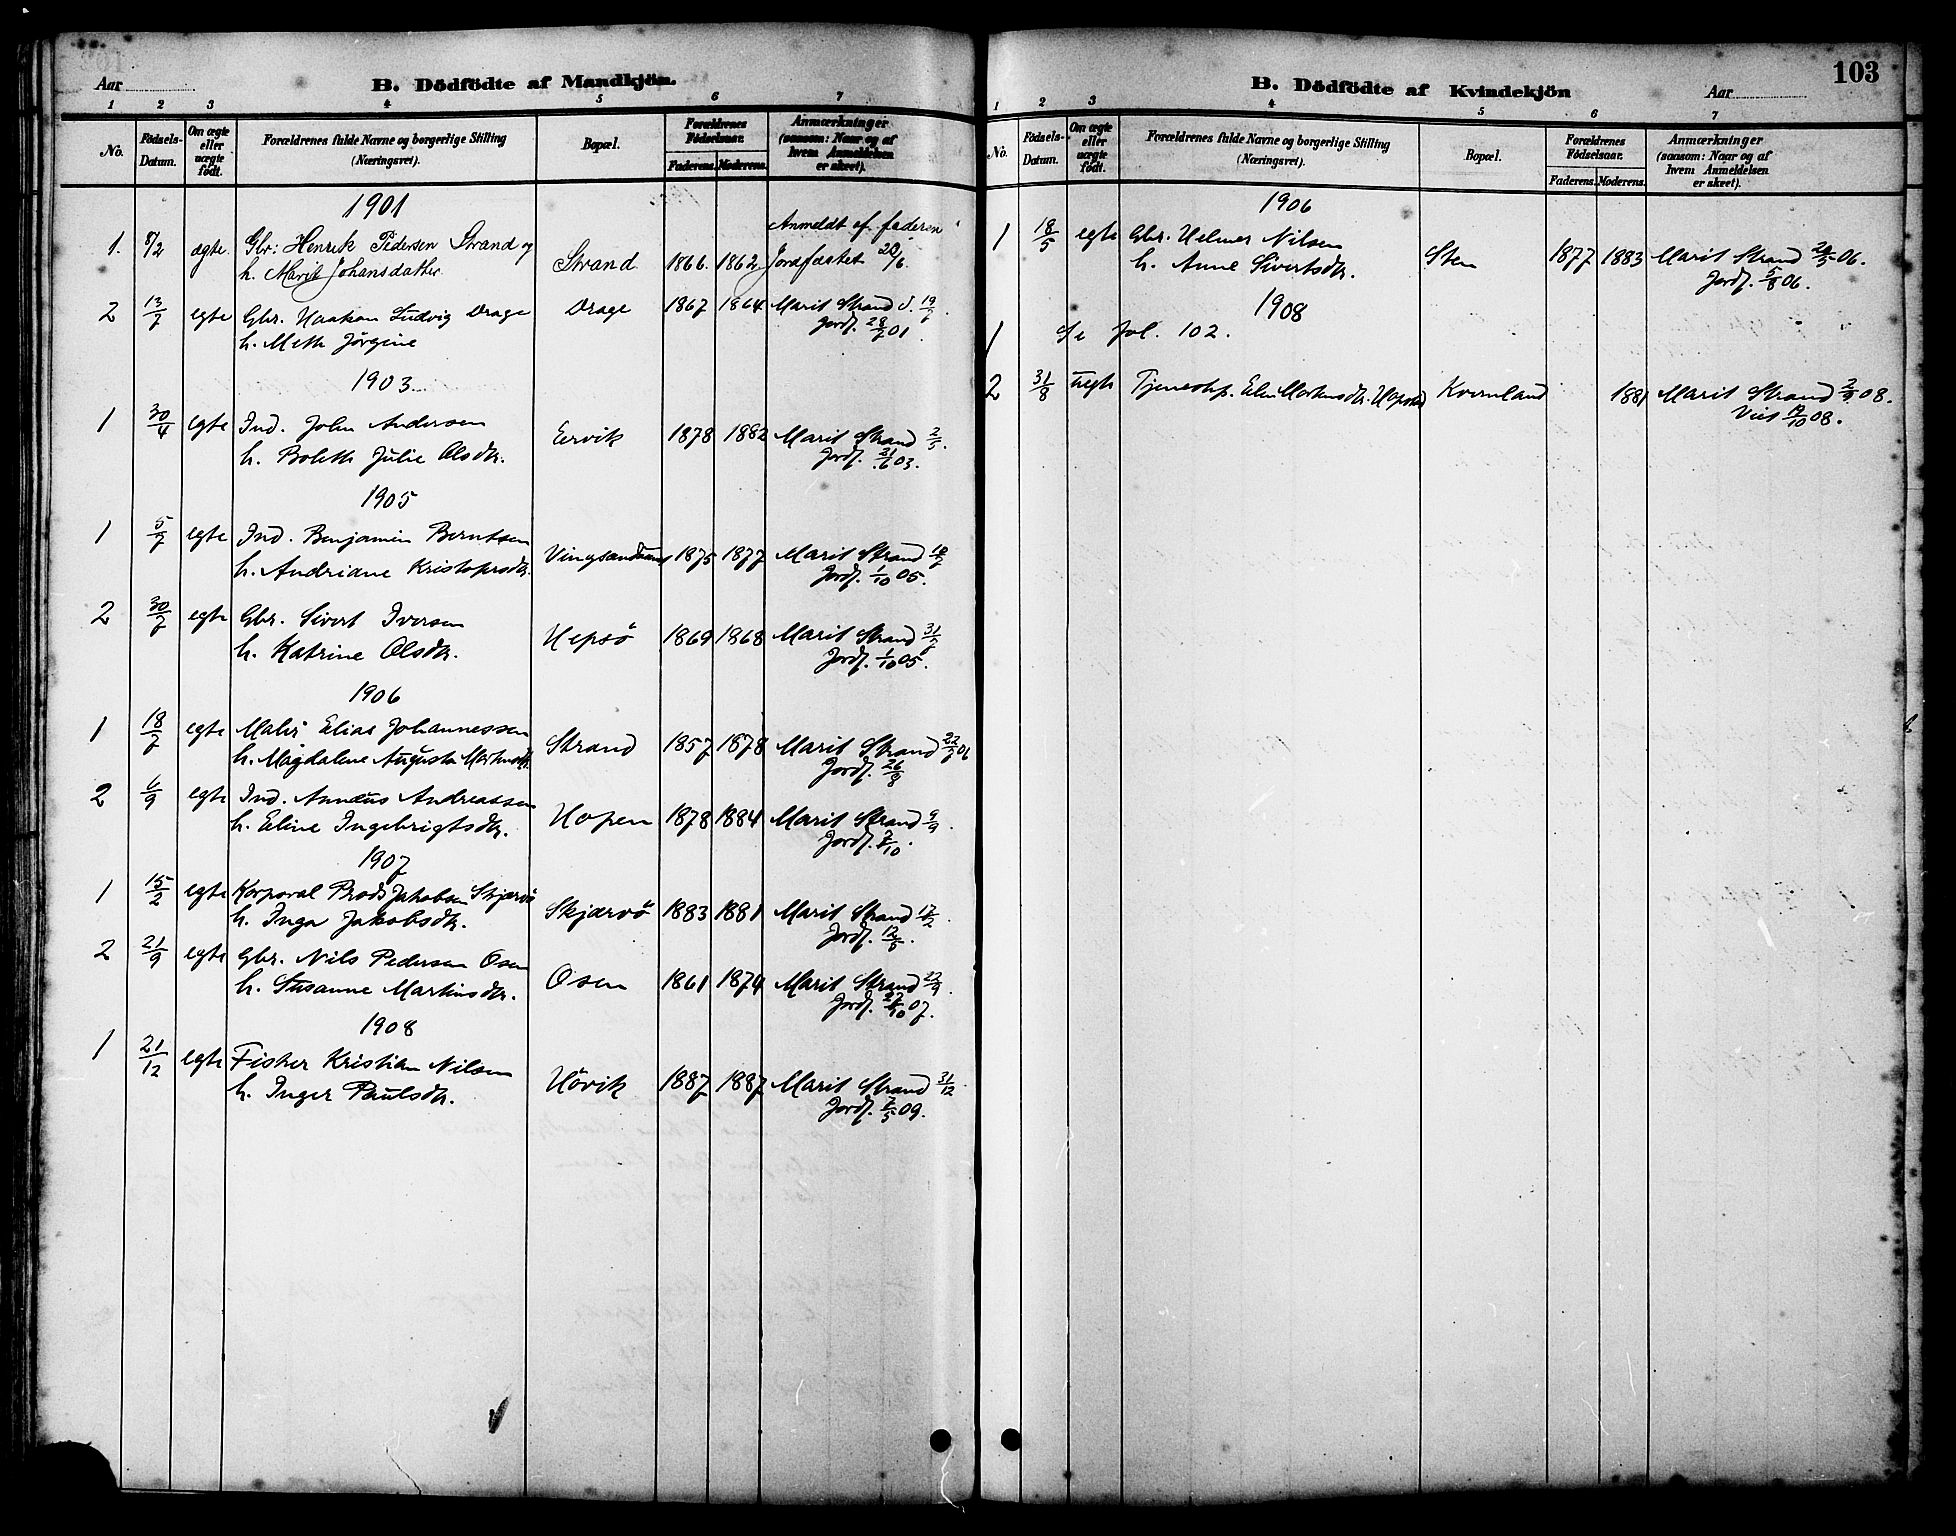 103
Aar
B. Dödfödte af Mandkjön.
1 2 3 4 5 6 7
No. Födsels-Datum. Om ægte eller uægte födt. Forældrenes fulde Navne og borgerlige Stilling (Næringsvei). Bopæl. Forældrenes Födselsaar. Faderens. Moderens. Anmærkninger (saasom: Naar og af hvem Anmeldelsen er skeet).
1901
1. 8/2 ægte. Gbr: Henrik Pedersen Strand og Strand 1866. 1862 Anmeldt af faderen
h. Marit Johansdatter Jordfæstet 20/6.
2 13/7 egte Gbr. Haakon Ludvig Drage Drage 1867 1864 Marit Strand d. 19/7.
h. Meth Jørgine Jordf. 28/7 01.
1903
1 30/4 egte Ind. John Andersen Ervik 1878 1882 Marit Strand 2/5.
h. Boleth Julie Olsdtr. Jordf. 21/6 03.
1905
1 5/7 egte Ind. Benjamin Berntsen Vingsand 1875 1877 Marit Strand 10/7
h. Andriane Kristofersdtr. Jordf. 1/10 05.
2 30/7 egte Gbr. Sivert Iversen Hepsö 1869 1868 Marit Strand 31/7
h. Katrine Olsdtr. Jordf. 1/10 05.
1906
1 18/7 egte Maler Elias Johannessen Strand 1857 1878 Marit Strand 22/7 06
h. Magdalene Augusta Martinsdtr. Jordf. 26/8
2 6/9 egte Ind. Annæus Andreassen Hopen 1878 1884 Marit Strand 9/9.
h. Eline Ingebrigtsdtr. Jordf. 7/10.
1907
1 15/2 egte Korporal Jakobsen Skjærvö Skjærvö 1883 1881 Marit Strand 17/2.
h. Inga Jakobsdtr. Jordf. 12/5.
2 21/9 egte Gbr. Nils Pedersen Osen Osen 1861 1874 Marit Strand 22/9.
h. Susanne Martinsdtr. Jordf. 27/10 07.
1908
1 21/12 egte Fisker Kristian Nilsen Hövik 1887 1887 Marit Strand 31/12
h. Inger Paulsdtr. Jordf. 2/5 09.
B. Dödfödte af Kvindekjön
Aar
1 2 3 4 5 6 7
No. Födsels-Datum. Om ægte eller uægte födt. Forældrenes fulde Navne og borgerlige Stilling (Næringsvei). Bopæl. Forældrenes Födselsaar. Faderens. Moderens. Anmærkninger (saasom: Naar og af hvem Anmeldelsen er skeet).
1906
1 18/5 egte Gbr. Helmer Nilsen Sten 1877 1883 Marit Strand 20/5 06.
h. Anne Sivertsdtr. Jordf. 5/8 06.
1908
1 Se fol. 102.
2 31/8 uegte Tjenestep. Elen Martinsdtr. Hopstad Kvernland 1881 Marit Strand 2/9 08.
Viet 17/10 08.